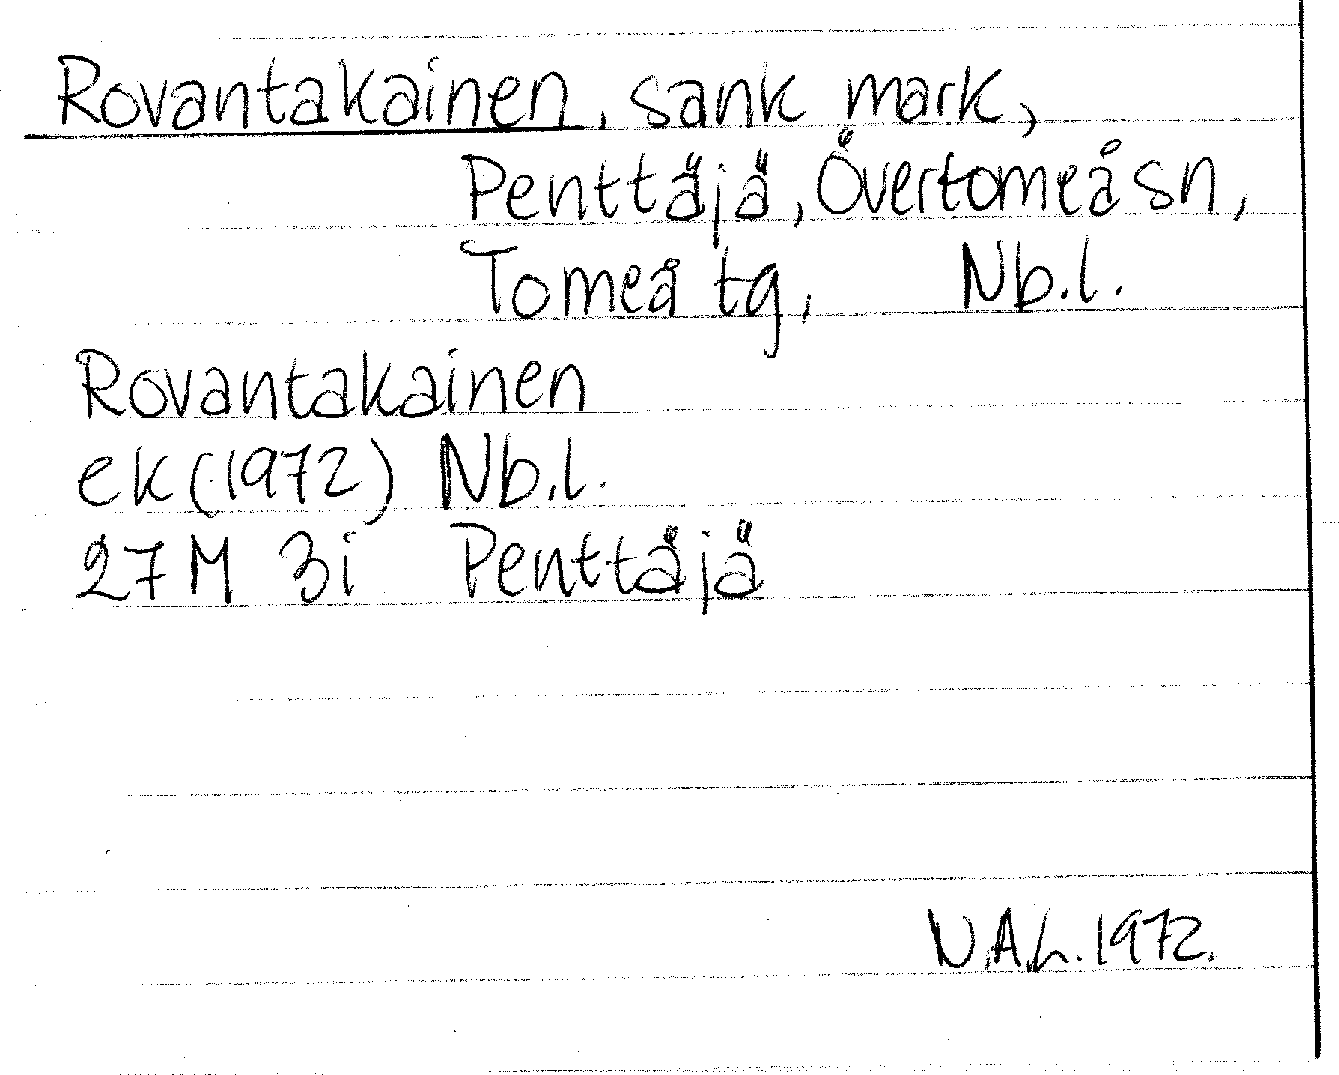 Rovantakainen, sank mark,
Penttäjä, Övertorneå sn,
Torneå tg, Nb.l.
Rovantakainen
ek (1972) Nb.l.
27M 3i Penttäjä
N.A.L. 1972.